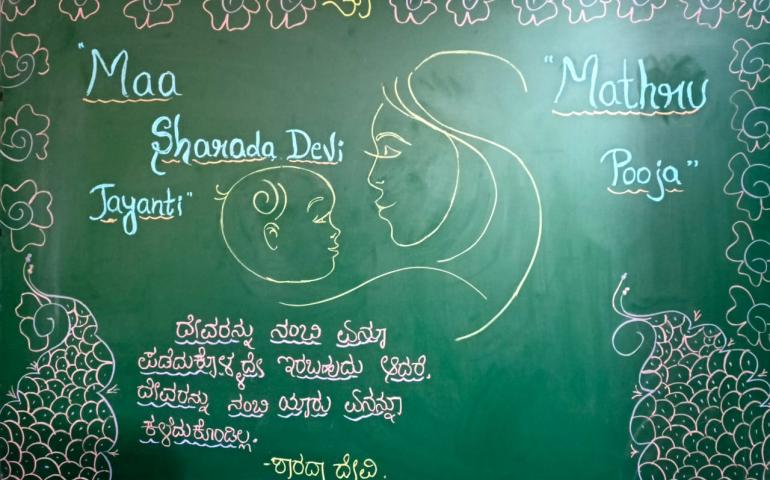 "Maa
Sharada Devi
Jayanti"
"Mathru
Pooja"
ದೇವರನ್ನು ನಂಬಿ ಏನೂ
ಪಡೆದುಕೊಳ್ಳದೇ ಇರಬಹುದು ಆದರೆ.
ದೇವರನ್ನು ನಂಬಿ ಯಾರು ಏನನ್ನೂ
ಕಳೆದುಕೊಂಡಿಲ್ಲ.
-ಶಾರದಾ ದೇವಿ.